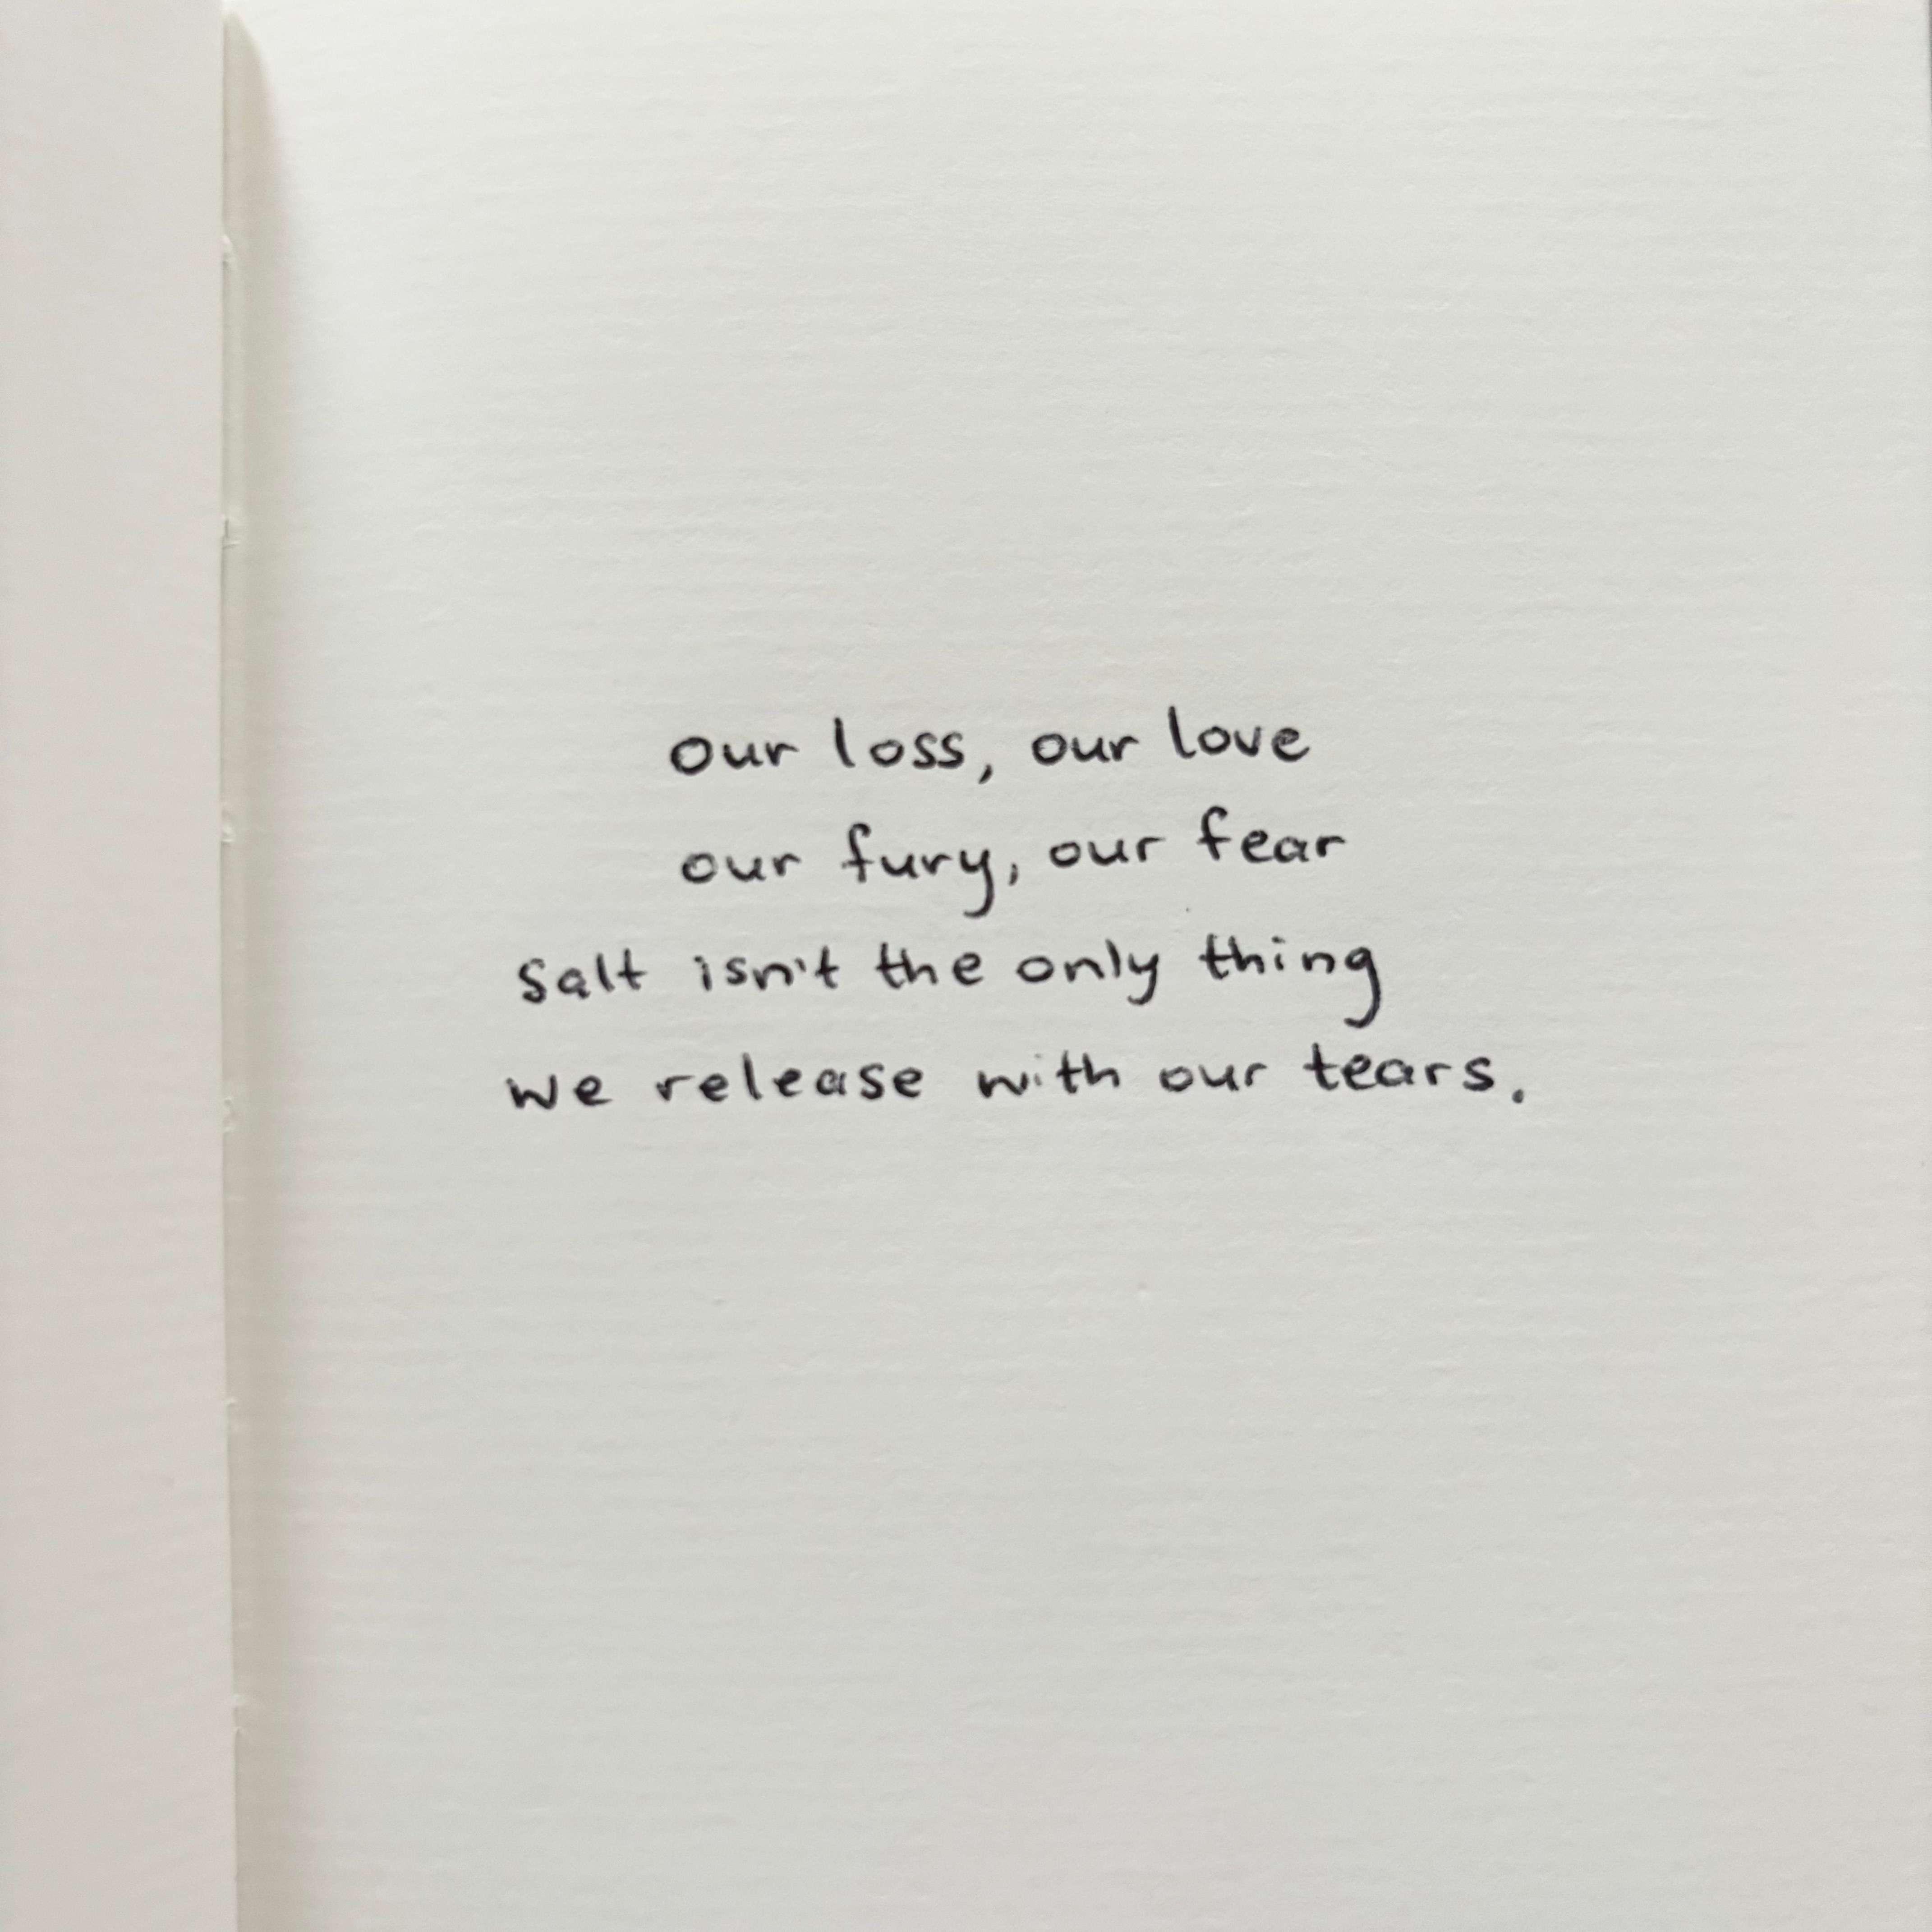 our loss, our love
our fury, our fear
Salt isn't the only thing
we release with our tears.